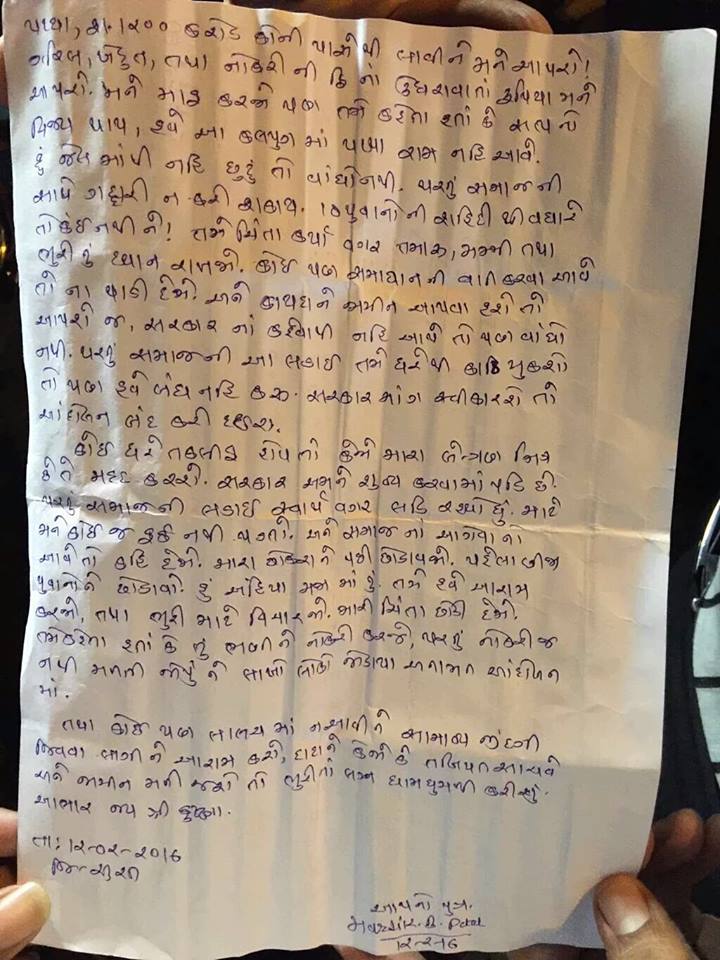 પપ્પા, રૂ.૧૨૦૦ કરોડ કોની પાસેથી લાવીને મને આપશે!
ગરિબ, ખેડુત, તથા નોકરી ની ના રૂપિયા મને
આપશે. મને માફ કરજો પણ તમે કહેતા હતાં કે સત્ય નો
વિજય થાય, હવે આ કલયુગ માં પપ્પા રામ નહિ આવે.
હું જેલ માંથી નહિ છુટું તો વાંધો નથી. પરતું સમાજ ની
સાથે ગદ્દારી ન કરી શકાય. ૧૦ યુવાનો ની શહિદી થી વધારે
તો કંઈ નથી ને! તમે ચિંતા કર્યા વગર તમારૂ, મમ્મી તથા
નું ધ્યાન રાખજો. કોઈ પણ સમાધાન ની વાત કરવા આવે
તો ના પાડી દેજો. અને જામીન આપવા હશે તો
આપશે જ, સરકાર નાં કહેવાથી નહિ આપે તો પણ વાંધો
નથી. પરતું સમાજ ની આ લડાઈ તમે ઘરેથી કાઢિ મુકશો
તો પણ હવે બંધ નહિ કરૂ. સરકાર માંગ સ્વીકારશે તો
આંદોલન બંધ કરી દઈશ.
કોઈ ઘરે તકલીફ હોય તો કેજો મારા બે ત્રણ મિત્ર
છે તે મદદ કરશે. સરકાર મને કરવામાં પડિ છે.
પરતું સમાજ ની લડાઈ સ્વાર્થ વગર લડિ રહ્યો છું. માટે
મને કોઈ જ ફર્ક નથી પડતો. અને સમાજ નાં આગેવાનો
આવે તો કહિ દેજો. મારા છોકરાને પછી છોડાવજો. પહેલા બીજા
યુવાનોને છોડાવો. હું અંહિયા મજા માં છું. તમે હવે આરામ
કરજો, તથા માટે વિચારજો. મારી ચિંતા છોડી દેજો.
તમે કહેતા હતાં કે તું ભણીને નોકરી કરજે, પરતું નોકરી જ
નથી મળતી એટલે લાખો લોકો જોડાયા અનામત આંદોલન
માં.
તથા કોઈ પણ લાલચ માં ન આવીને સામાન્ય જીંદગી
જિવવા લાગીને આરામ કરો, દાદાને કેજો કે તબિયત સાચવે
અને જામીન મળી જશે તો લગ્ન ધામધુમથી કરીશું.
આભાર જય શ્રી કૃષ્ણ.
તા: ૧૨-૦૨-૨૦૧૬
આપનો પુત્ર.
Patel
૧૨-૨-૧૬